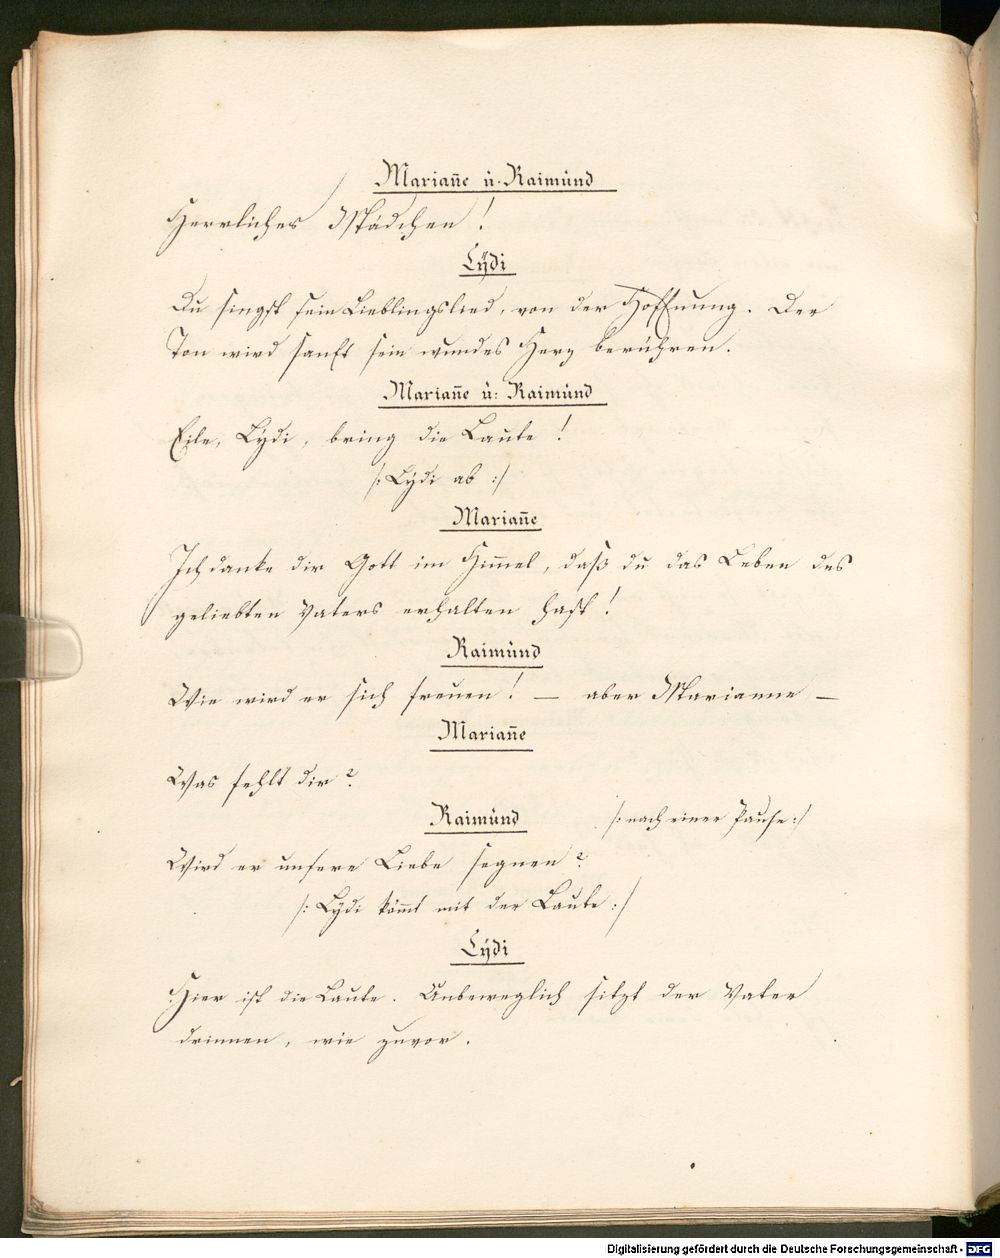 Mariañe u. Raimund
Herrliches Mädchen!
Lÿdi
Du singst sein Lieblingslied, von der Hoffnung. Der
Ton wird sanft sein wundes Herz berühren.
Mariañe u: Raimund
Eile, Lÿdi, bring die Laute!
/: Lÿdi ab :/
Mariañe
Ich danke dir Gott im Him̄el, daß du das Leben des
geliebten Vaters erhalten hast!
Raimund
Wie wird er sich freuen! — aber Marianne —
Mariañe
Was fehlt dir?
Raimund /: nach einer Pause :/
Wird er unsere Liebe segnen?
/: Lÿdi köm̄t mit der Laute :/
Lÿdi
Hier ist die Laute. Unbeweglich sitzt der Vater
drinnen, wie zuvor.
Digitalisierung gefördert durch die Deutsche Forschungsgemeinschaft - DFG